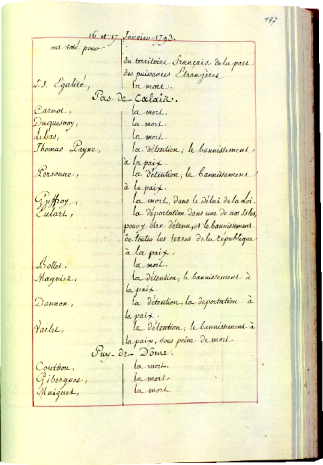 16 et 17 Janvier 1793.
ont voté pour
du territoire français de la part
des puissances Etrangères.
L. J. Egalité, la mort.
Pas de Calais.
Carnot, la mort.
Duquesnoy, la mort.
Lebas, la mort.
Thomas Payne, la détention, le bannissement
à la paix.
Personne, la détention, le bannissement
à la paix.
Guffroy, la mort, dans le délai de la loi.
Enlart, la déportation dans une de nos Isles,
pour y être détenu, et le bannissement
de toutes les terres de la république
à la paix.
Bollet, la mort.
Magniez, la détention, le bannissement à
la paix.
Daunou, la détention, la déportation à
la paix.
Varlet, la détention, le bannissement à
la paix, sous peine de mort.
Puy-de-Dôme.
Couthon, la mort.
Gibergues, la mort.
Maignet, la mort.